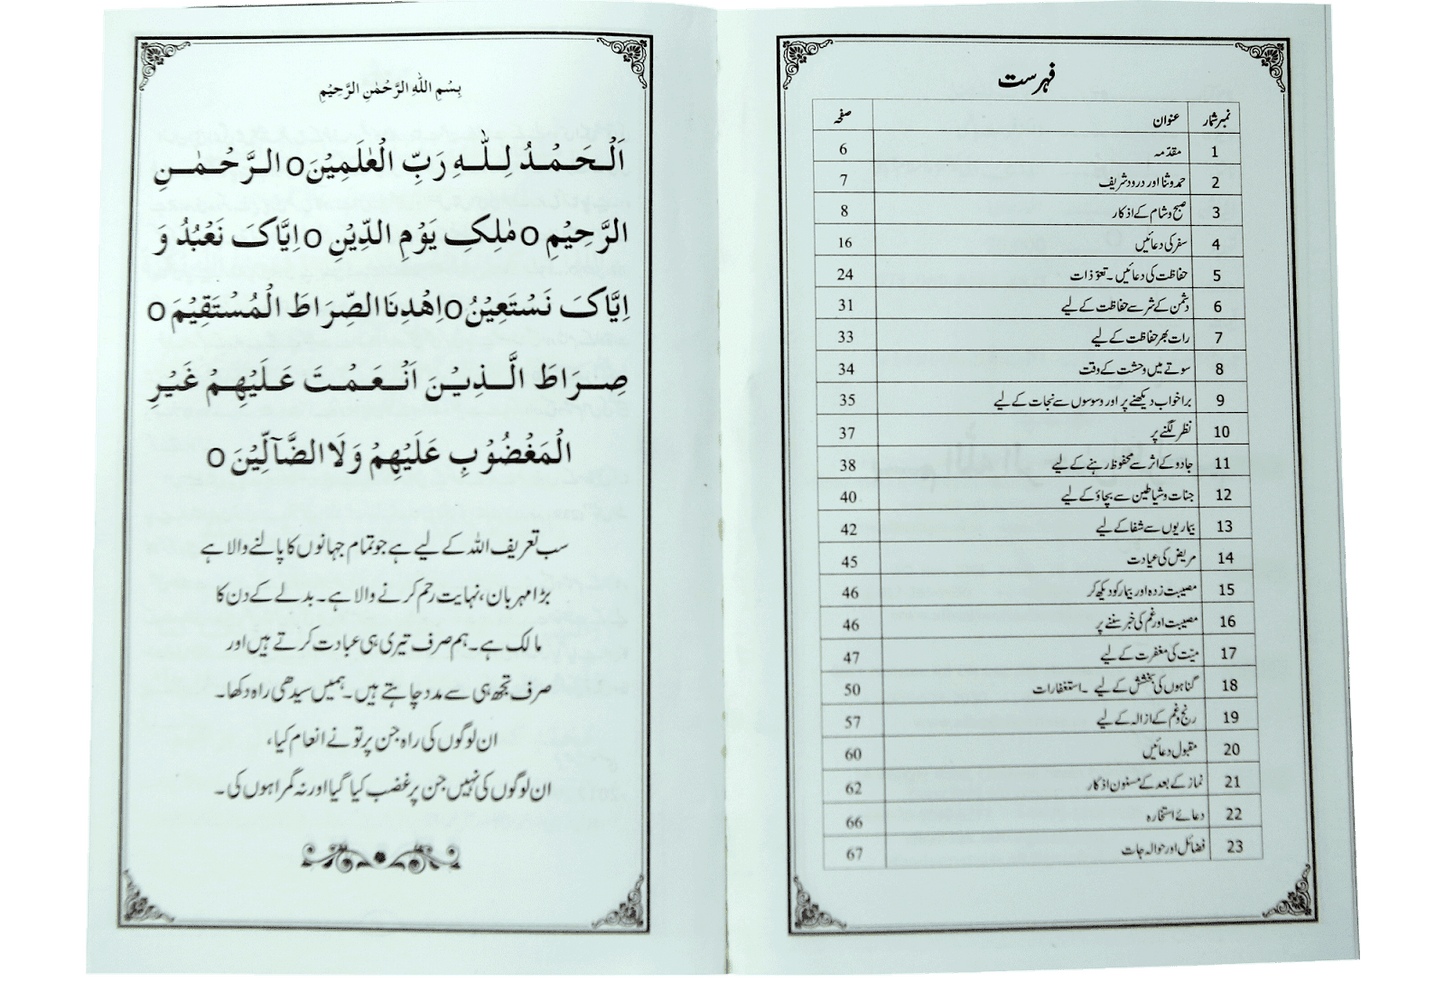 فہرست
نمبر شمار عنوان صفحہ
1 مقدّمہ 6
2 حمد و ثنا اور درود شریف 7
3 صبح و شام کے اذکار 8
4 سفر کی دعائیں 16
5 حفاظت کی دعائیں ۔ تعوّذات 24
6 دشمن کے شر سے حفاظت کے لیے 31
7 رات بھر حفاظت کے لیے 33
8 سوتے میں وحشت کے وقت 34
9 برا خواب دیکھنے پر اور وسوسوں سے نجات کے لیے 35
10 نظر لگنے پر 37
11 جادو کے اثر سے محفوظ رہنے کے لیے 38
12 جنات و شیاطین سے بچاؤ کے لیے 40
13 بیماریوں سے شفا کے لیے 42
14 مریض کی عیادت 45
15 مصیبت زدہ اور بیمار کو دیکھ کر 46
16 مصیبت اور غم کی خبر سننے پر 46
17 میّت کی مغفرت کے لیے 47
18 گناہوں کی بخشش کے لیے ۔ استغفارات 50
19 رنج و غم کے ازالہ کے لیے 57
20 مقبول دعائیں 60
21 نماز کے بعد کے مسنون اذکار 62
22 دعائے استخارہ 66
23 فضائل اور حوالہ جات 67
بِسْمِ اللّٰهِ الرَّحْمٰنِ الرَّحِيْمِ
اَلْحَمْدُ لِلّٰهِ رَبِّ الْعٰلَمِيْنَ o الرَّحْمٰنِ
الرَّحِيْمِ o مٰلِكِ يَوْمِ الدِّيْنِ o اِيَّاكَ نَعْبُدُ وَ
اِيَّاكَ نَسْتَعِيْنُ o اِهْدِنَا الصِّرَاطَ الْمُسْتَقِيْمَ o
صِرَاطَ الَّذِيْنَ اَنْعَمْتَ عَلَيْهِمْ غَيْرِ
الْمَغْضُوْبِ عَلَيْهِمْ وَلَا الضَّآلِّيْنَ o
سب تعریف اللہ کے لیے ہے جو تمام جہانوں کا پالنے والا ہے
بڑا مہربان، نہایت رحم کرنے والا ہے۔ بدلے کے دن کا
مالک ہے۔ ہم صرف تیری ہی عبادت کرتے ہیں اور
صرف تجھ ہی سے مدد چاہتے ہیں۔ ہمیں سیدھی راہ دکھا۔
ان لوگوں کی راہ جن پر تو نے انعام کیا،
ان لوگوں کی نہیں جن پر غضب کیا گیا اور نہ گمراہوں کی۔